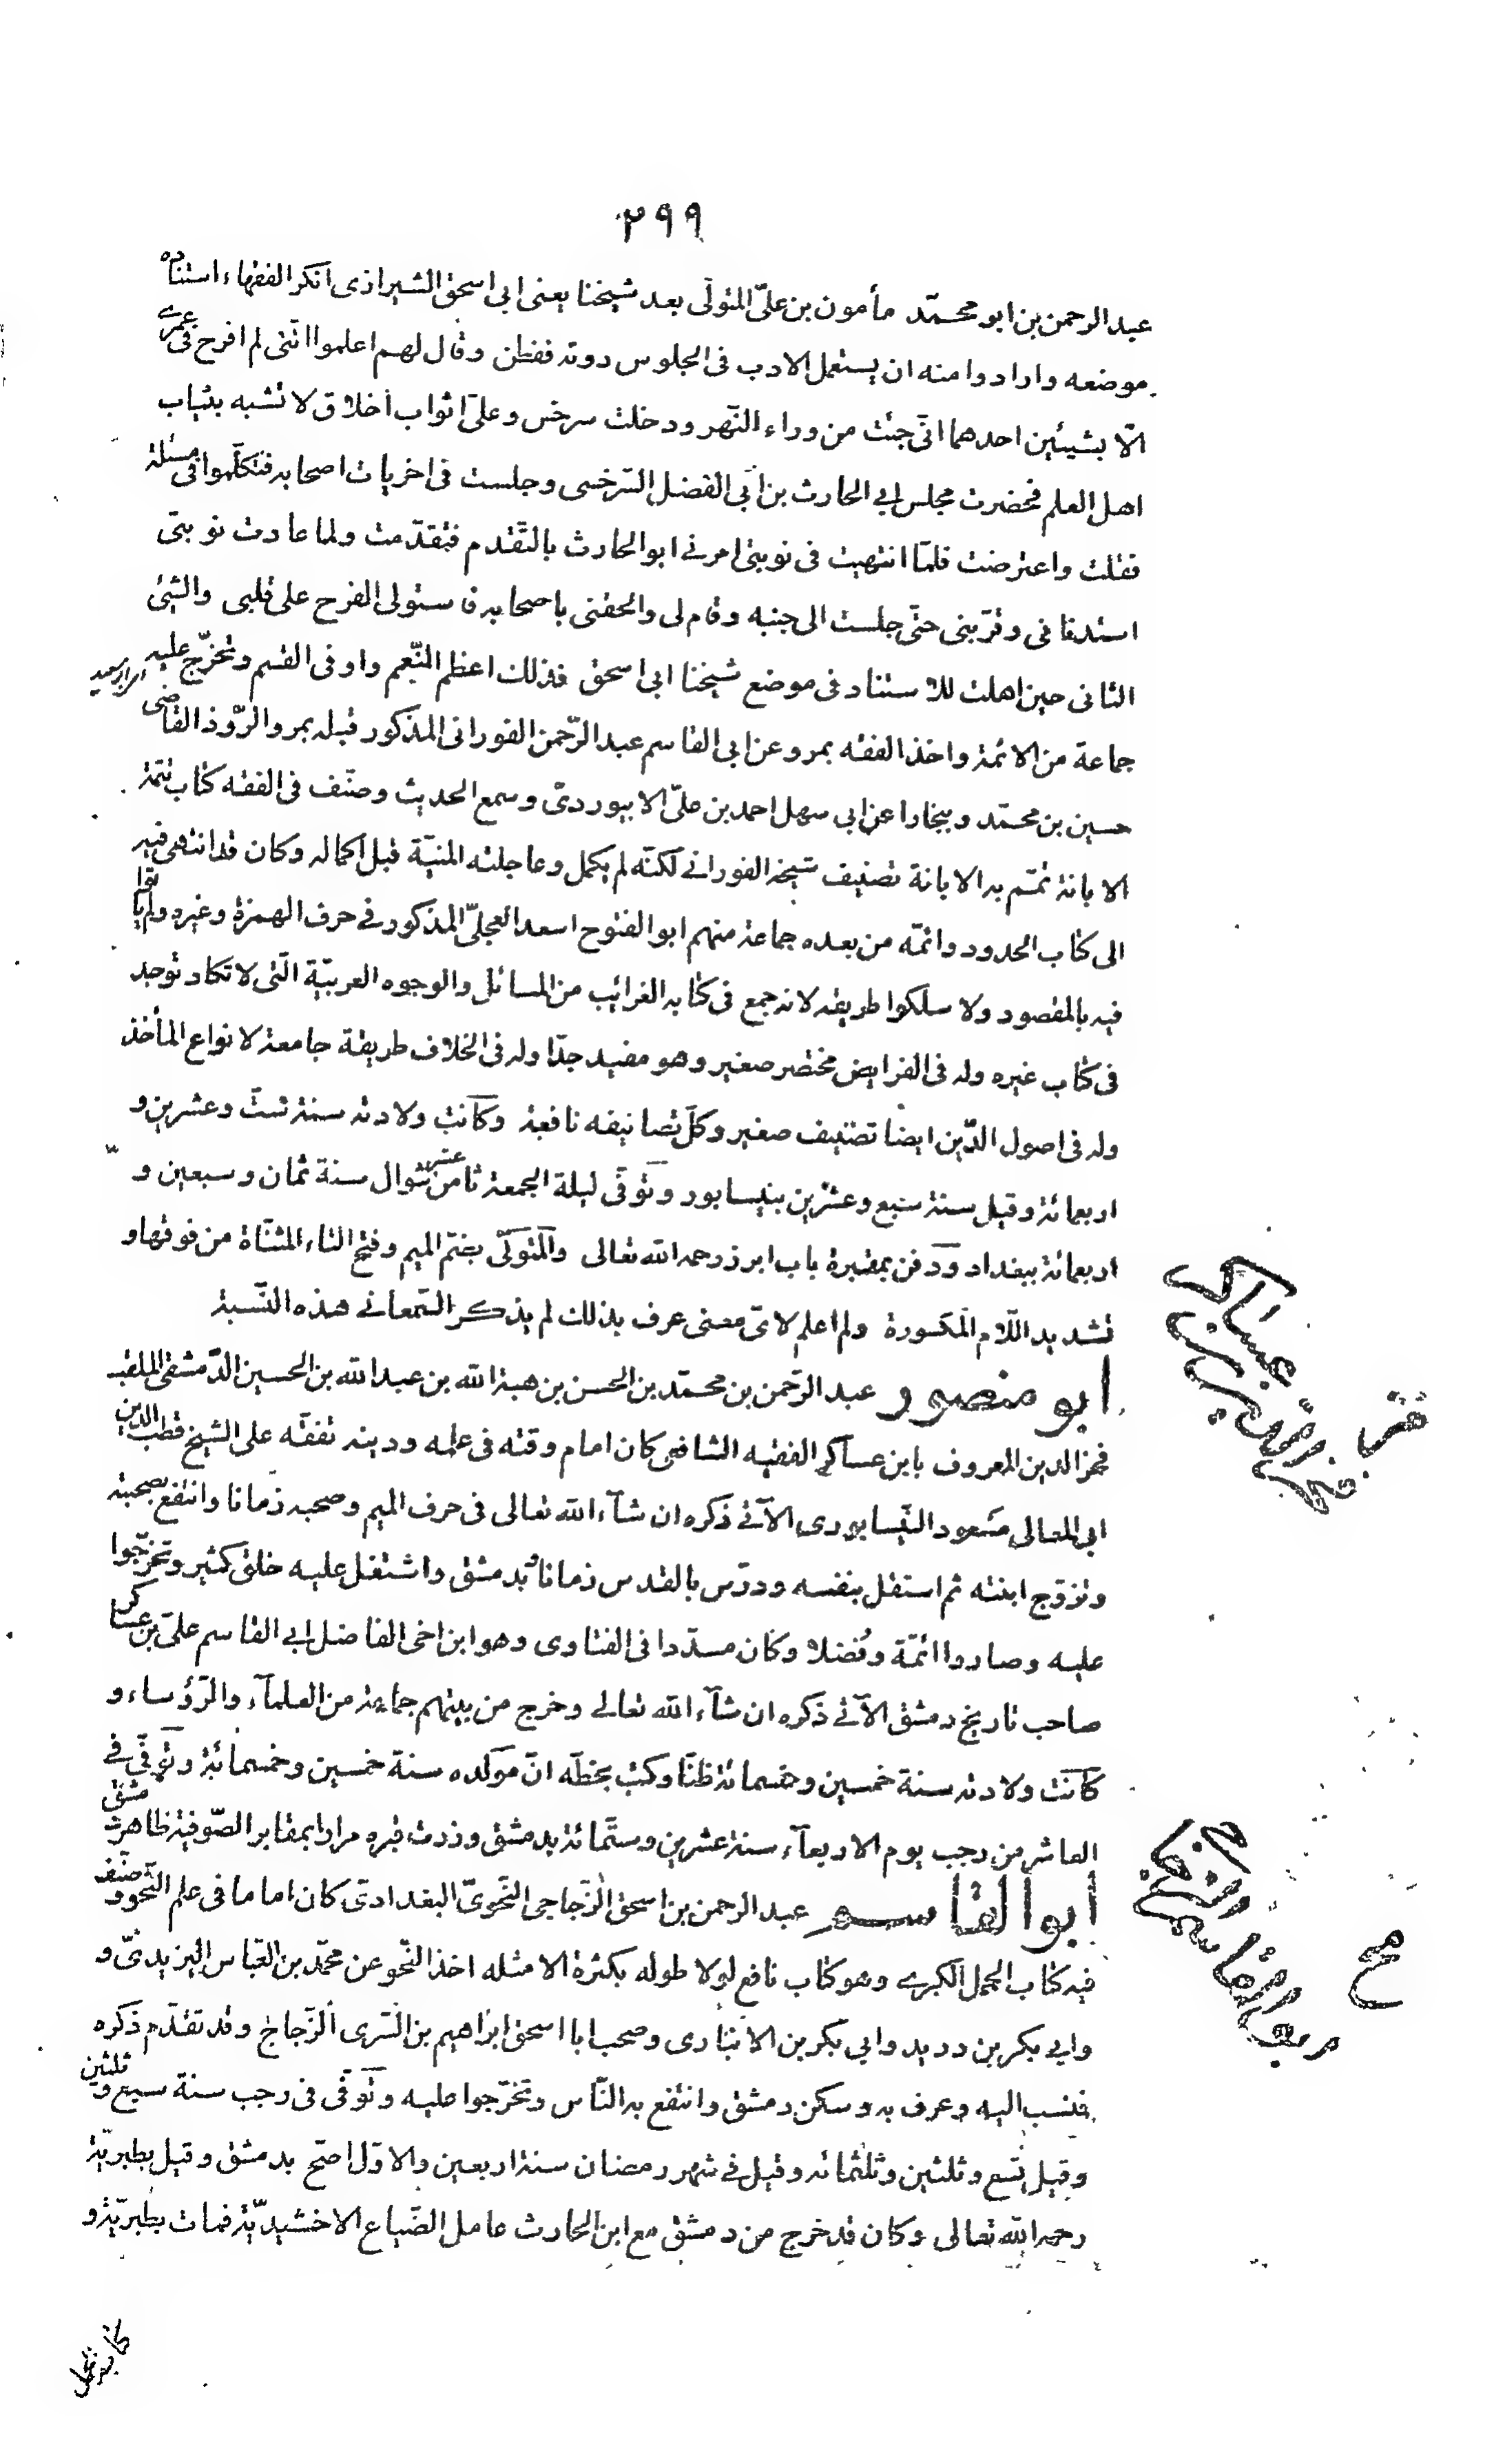 ٢٩٩
عبد الرحمن بن ابو محمّد مأمون بن علىّ المتولّى بعد شيخنا يعنى ابى اسحق الشيرازى انكر الفقهاء استناده
موضعه وارادوا منه ان يستعمل الادب فى الجلوس دونه ففطن وقال لهم اعلموا اننى لم افرح فى عمرى
الّا بشيئين احدهما انّى جئت من وراء النّهر ودخلت سرخس وعلىّ اثواب اخلاق لا تشبه بثياب
اهل العلم فحضرت مجلس ابى الحارث بن ابى الفضل السّرخسى وجلست فى اخريات اصحابه فتكلّموا فى مسئلة
فقلت واعترضت فلمّا انتهيت فى نوبتى امرنى ابو الحارث بالتّقدم فتقدّمت ولما عادت نوبتى
استدنانى وقرّبنى حتّى جلست الى جنبه وقام لى والحقنى باصحابه فاستولى الفرح على قلبى والشئ
الثانى حين اهلت للاستناد فى موضع شيخنا ابى اسحق فذلك اعظم النّعم واوفى القسم وتخرّج عليه
جماعة من الائمة واخذ الفقه بمرو عن ابى القاسم عبد الرّحمن الفورانى المذكور قبله بمرو الرّوذ القاضى
حسين بن محمّد وببخارا عن ابى سهل احمد بن علىّ الابيوردىّ وسمع الحديث وصنّف فى الفقه كتاب تتمّة
الابانة تمّم به الابانة تصنيف شيخه الفورانى لكنّه لم يكمل وعاجلته المنيّة قبل اكماله وكان قد انتهى فيه
الى كتاب الحدود واتمّه من بعده جماعة منهم ابو الفتوح اسعد العجلىّ المذكور فى حرف الهمزة وغيره ولم ياتوا
فيه بالمقصود ولا سلكوا طريقه لانه جمع فى كتابه الغرائب من المسائل والوجوه العربيّة الّتى لا تكاد توجد
فى كتاب غيره وله فى الفرايض مختصر صغير وهو مفيد جدّا وله فى الخلاف طريقة جامعة لانواع المأخذ
وله فى اصول الدّين ايضا تصنيف صغير وكلّ تصانيفه نافعة وكانت ولادته سنة ستّ وعشرين و
اربعمائة وقيل سنة سبع وعشرين بنيسابور وتوفّى ليلة الجمعة ثامن عشر شوال سنة ثمان وسبعين و
اربعمائة ببغداد ودفن بمقبرة باب ابرز رحمه الله تعالى والمتولّى بضمّ الميم وفتح التاء المثنّاة من فوقها و
تشديد اللّام المكسورة ولم اعلم لاىّ معنى عرف بذلك لم يذكر السّمعانى هذه النّسبة
ابو منصور عبد الرّحمن بن محمّد بن الحسن بن هبة الله بن عبد الله بن الحسين الدّمشقى الملقب
فخر الدين المعروف بابن عساكر الفقيه الشافعى كان امام وقته فى علمه ودينه تفقّه على الشيخ قطب الدين
ابى المعالى مسعود النّيسابورى الآتى ذكره ان شآء الله تعالى فى حرف الميم وصحبه زمانا وانتفع بصحبته
وتزوّج ابنته ثم استقل بنفسه ودرّس بالقدس زمانا وبدمشق واشتغل عليه خلق كثير وتخرّجوا
عليه وصاروا ائمّة وفضلا وكان مسدّدا فى الفتاوى وهو ابن اخى الفاضل ابى القاسم علىّ بن عساكر
صاحب تاريخ دمشق الآتى ذكره ان شآء الله تعالى وخرج من بيتهم جماعة من العلمآء والرّؤساء و
كانت ولادته سنة خمسين وخمسمائة ظنّا وكتب بخطّه انّ مولده سنة خمسين وخمسمائة وتوفّى فى
العاشر من رجب يوم الاربعآء سنة عشرين وستّمائة بدمشق وزرت قبره مرارا بمقابر الصّوفية ظاهر دمشق
ابو القاسم عبد الرحمن بن اسحق الزّجاجى النّحوىّ البغدادىّ كان اماما فى علم النّحو وصنّف
فيه كتاب الجمل الكبرى وهو كتاب نافع لولا طوله بكثرة الامثله اخذ النّحو عن محمّد بن العبّاس اليزيدىّ و
وابى بكر بن دريد وابى بكر بن الانبارى وصحب ابا اسحق ابراهيم بن السّرى الزّجاج وقد تقدّم ذكره
فنسب اليه وعرف به وسكن دمشق وانتفع به النّاس وتخرّجوا عليه وتوفّى فى رجب سنة سبع وثلثين
وقيل تسع وثلثين وثلثمائه وقيل فى شهر رمضان سنة اربعين والاوّل اصحّ بدمشق وقيل بطبريّة
رحمه الله تعالى وكان قد خرج من دمشق مع ابن الحارث عامل الضّياع الاخشيديّة فمات بطبريّة و
فخر الدين بن عساكر
ابو القاسم الزجاجى
كتابه الجمل